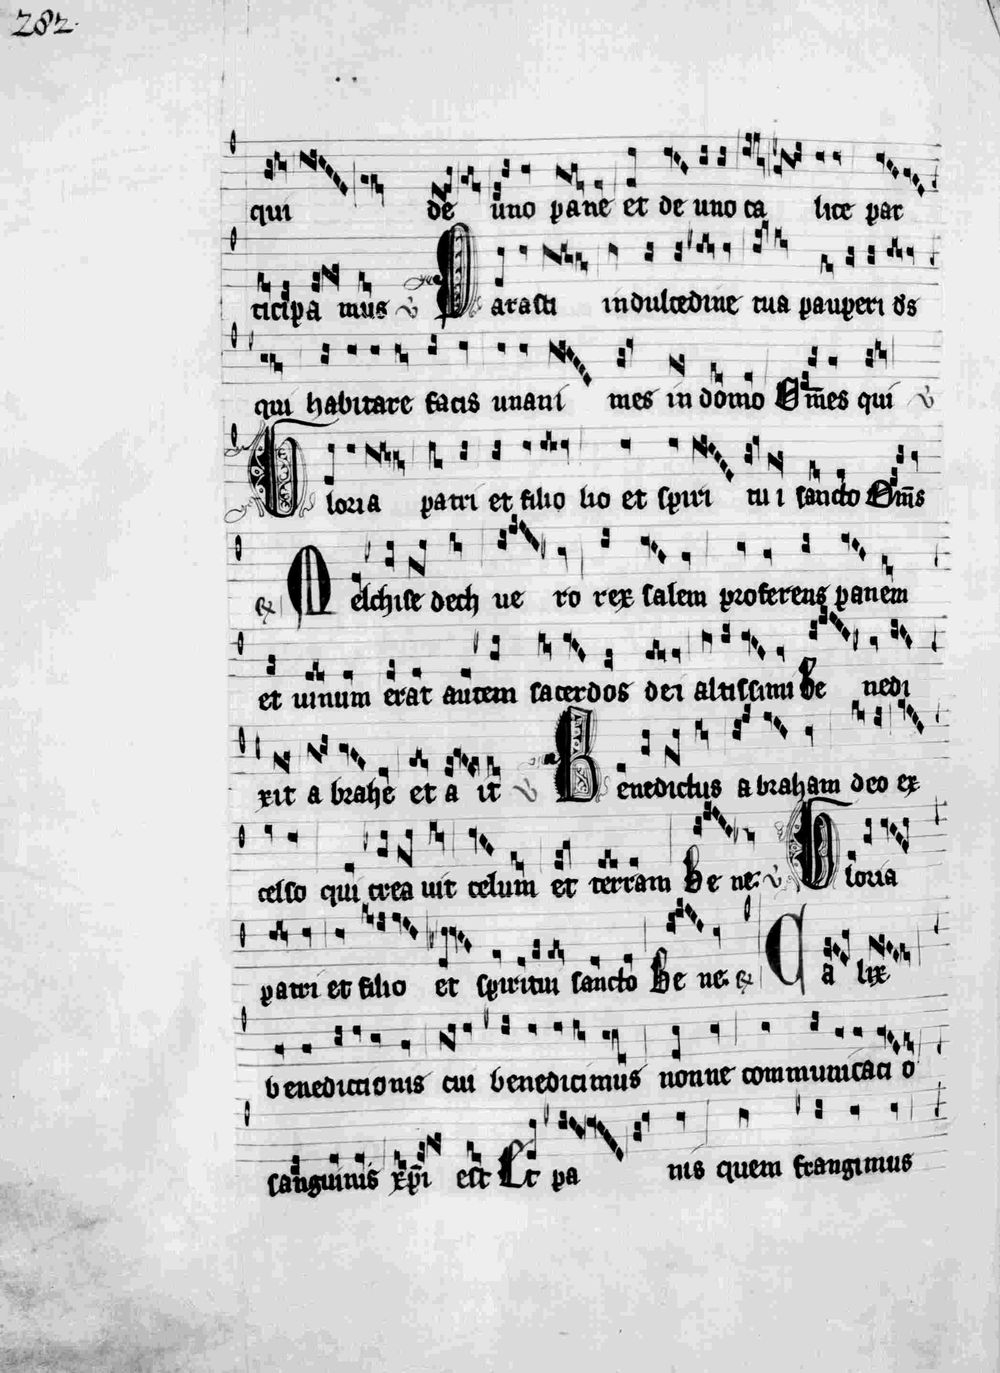 282.
qui de uno pane et de uno ca lice par
ticipa mus ℣ Parasti in dulcedine tua pauperi ds̄
qui habitare facis unani mes in domo Om̄es qui ℣
Gloria patri et filio lio et spiri tu i sancto Om̄s
℟ Melchise dech ue ro rex salem proferens panem
et uinum erat autem sacerdos dei altissimi Be nedi
xit a brahe et a it ℣ Benedictus a braham deo ex
celso qui crea uit celum et terram Be ne. ℣ Gloria
patri et filio et spiritui sancto Be ne. ℟ Ca lix
benedictionis cui benedicimus nonne communicati o
sanguinis xp̄i est Et pa nis quem frangimus